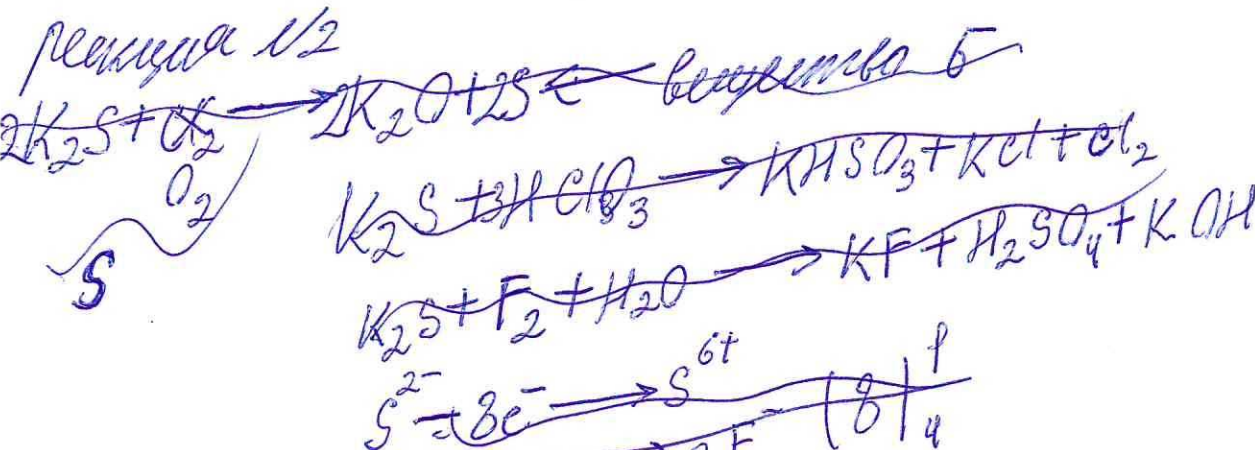 реакция №2
2K₂S + O₂ → 2K₂O + 2S ← вещество Б
S
K₂S + 3HClO₃ → KHSO₃ + KCl + Cl₂
K₂S + F₂ + H₂O → KF + H₂SO₄ + KOH
S²⁻ - 8e⁻ → S⁶⁺ (8) 1
→ 2F⁻ 4